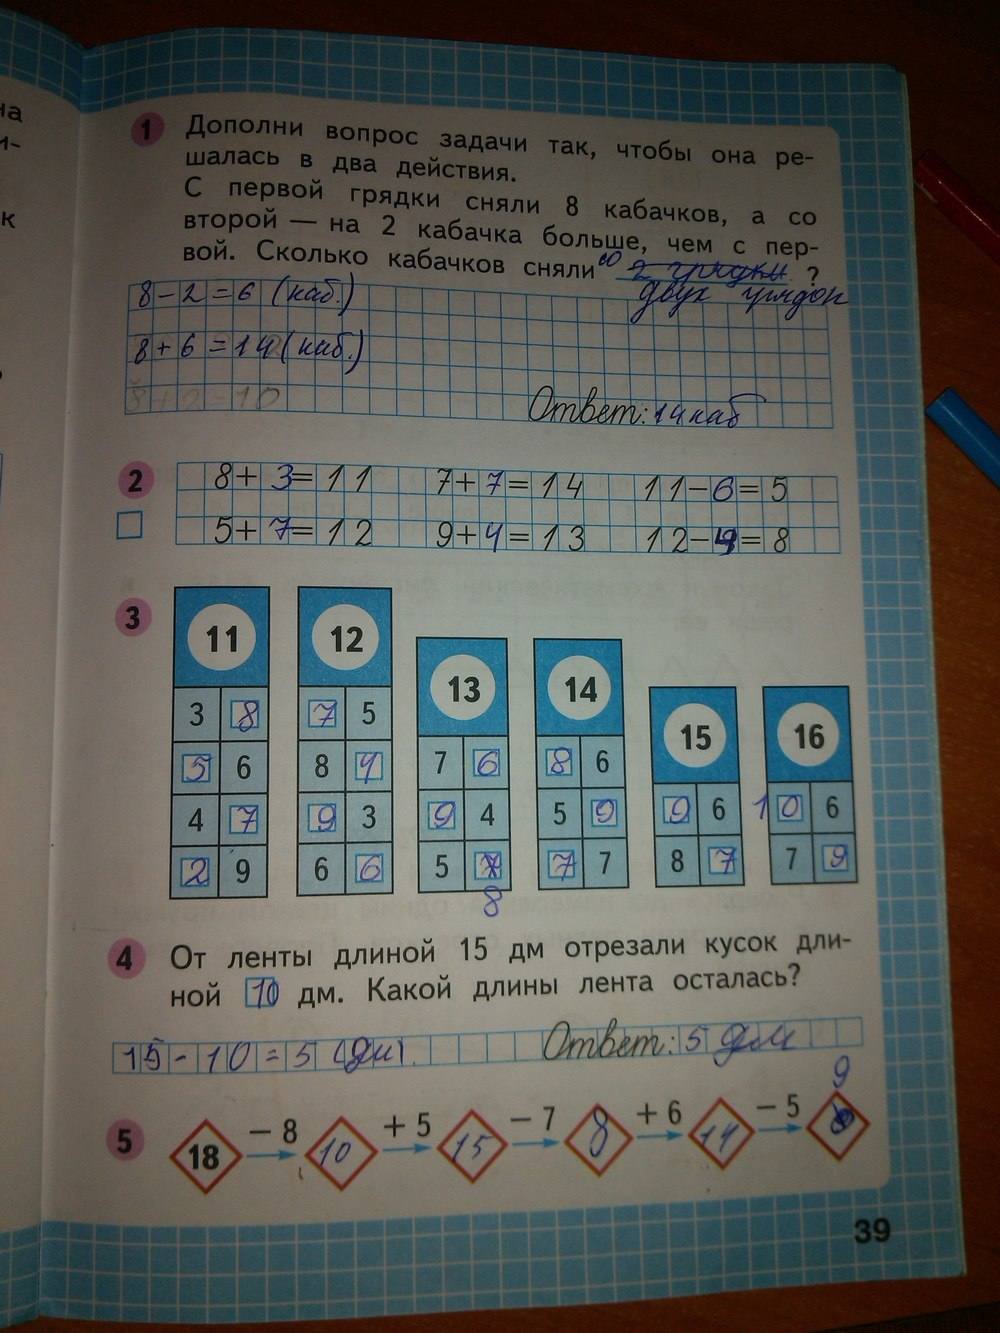 на
и-
к
1 Дополни вопрос задачи так, чтобы она ре-
шалась в два действия.
С первой грядки сняли 8 кабачков, а со
второй — на 2 кабачка больше, чем с пер-
вой. Сколько кабачков сняли со 2 грядки ?
двух грядок
8-2=6 (каб.)
8+6=14 (каб.)
8+2=10
Ответ: 14 каб
2 8+3=11 7+7=14 11-6=5
5+7=12 9+4=13 12-4=8
3
11 12
13 14
15 16
3 8 7 5
5 6 8 4 7 6 8 6
4 7 9 3 9 4 5 9 9 6 10 6
2 9 6 6 5 7 7 7 8 7 7 9
8
4 От ленты длиной 15 дм отрезали кусок дли-
ной 10 дм. Какой длины лента осталась?
15-10=5 (дм). Ответ: 5 дм
9
5 18 - 8 10 + 5 15 - 7 8 + 6 14 - 5
39